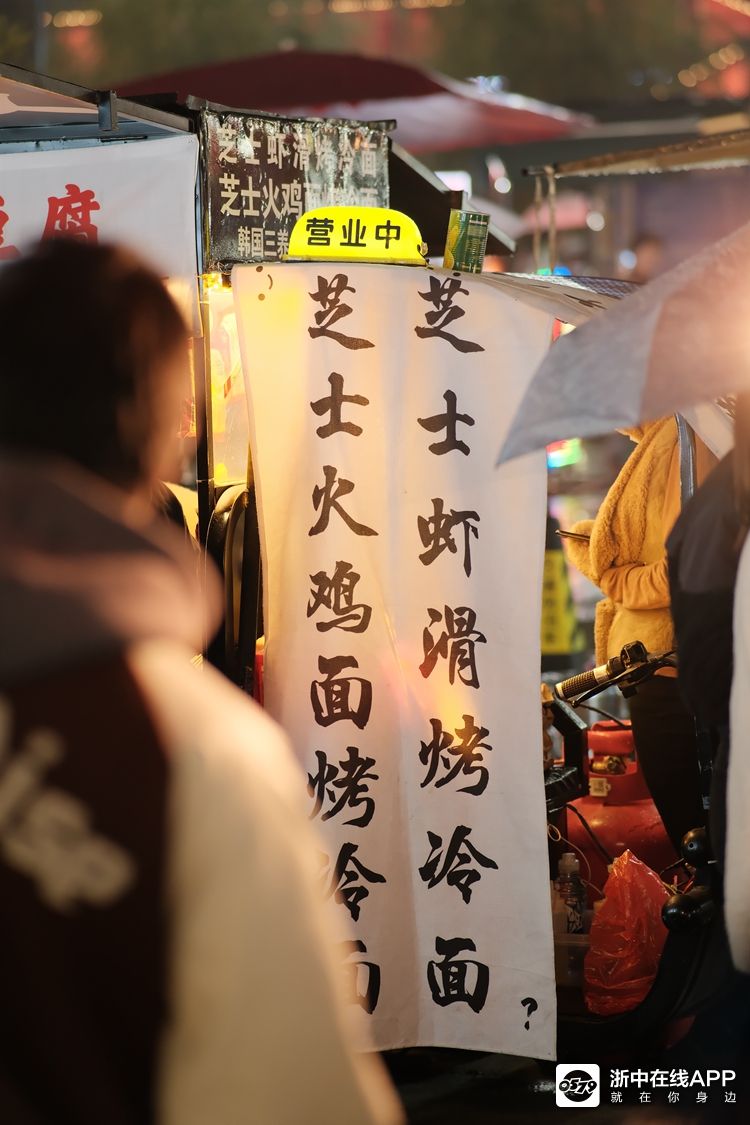 芝士虾滑烤冷面
芝士火鸡面烤冷面
韩国三养
腐
营业中
芝士虾滑烤冷面?
芝士火鸡面烤冷面
0579
浙中在线APP
就在你身边